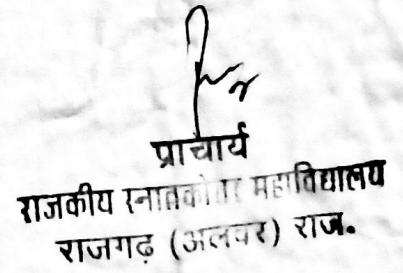 प्राचार्य
राजकीय स्नातकोत्तर महाविद्यालय
राजगढ़ (अलवर) राज.